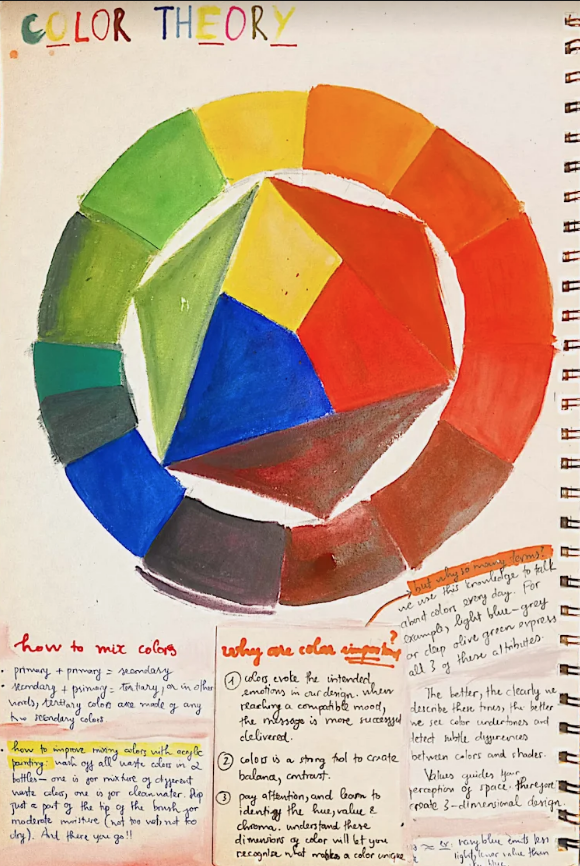 COLOR THEORY
how to mix colors
• primary + primary = secondary
secondary + primary = tertiary, or in other
words, tertiary colors are made of any
two secondary colors
• how to improve mixing colors with acrylic
painting: wash off all waste color in 2
bottles - one is for mixture of different
waste color, one is for clean water. Dip
just a part of the tip of the brush for
moderate moisture (not too wet, not too
dry). And there you go!!
why are color important?
1 colors evoke the intended
emotions in our design. when
reaching a compatible mood,
the message is more successed
delivered.
2 colors is a strong tool to create
balance, contrast.
3 pay attention, and learn to
identify the hue, value &
chroma. understand these
dimensions of color will let you
recognise what makes a color unique
but why so many terms?
we use this knowledge to talk
about colors every day. For
example, light blue-grey
or deep olive green express
all 3 of these attributes.
The better, the clearly we
describe these tones, the better
we see color undertones and
detect subtle differences
between colors and shades.
Values guides your
perception of space, therefore
create 3-dimensional design.
ex: navy blue emits less
light, lower value than
blue